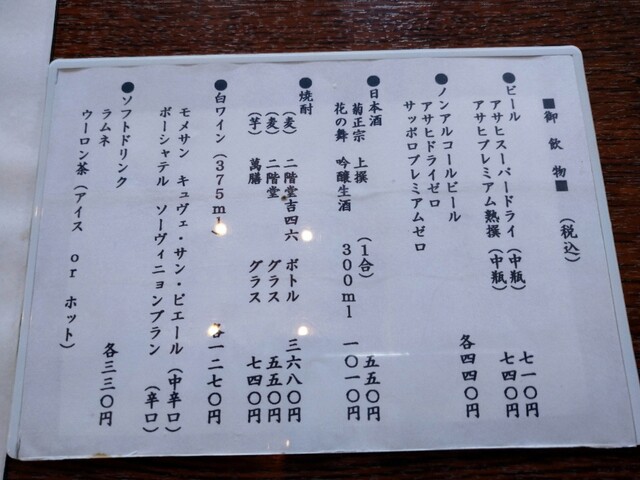 ■御飲物■
(税込)
●ビール
アサヒスーパードライ(中瓶) 七一〇円
アサヒプレミアム熟撰(中瓶) 七四〇円
●ノンアルコールビール
アサヒドライゼロ
サッポロプレミアムゼロ
各四四〇円
●日本酒
菊正宗 上撰 (1合) 五五〇円
花の舞 吟醸生酒 300ml 一〇一〇円
●焼酎
(麦) 二階堂吉四六 ボトル 三六八〇円
(麦) 二階堂 グラス 五五〇円
(芋) 萬膳 グラス 七四〇円
●白ワイン(375ml) 各一二七〇円
モメサン キュヴェ・サン・ピエール (中辛口)
ボーシャテル ソーヴィニョンブラン (辛口)
●ソフトドリンク
ラムネ 各三三〇円
ウーロン茶(アイス or ホット)